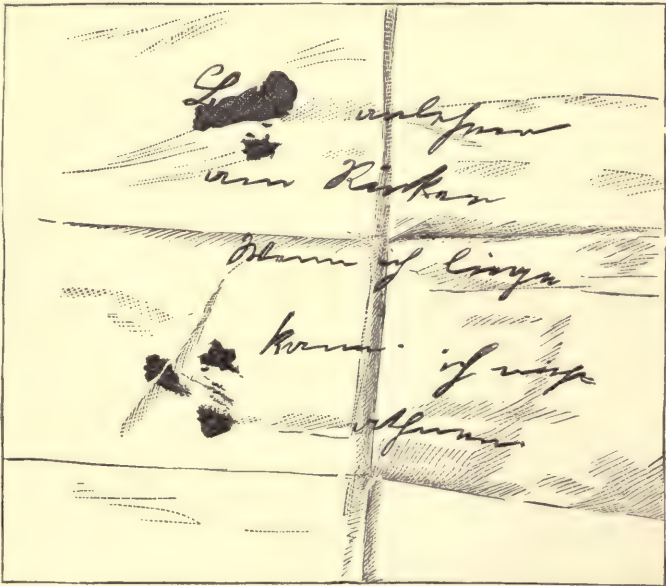 L anlehnen
am Rücken
Wenn ich liege
kann ich nicht
athmen